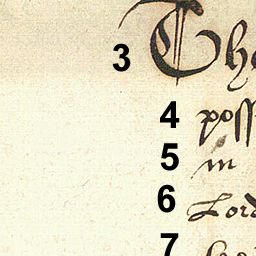 3 The
4 poss
5 in
6 Lord
7